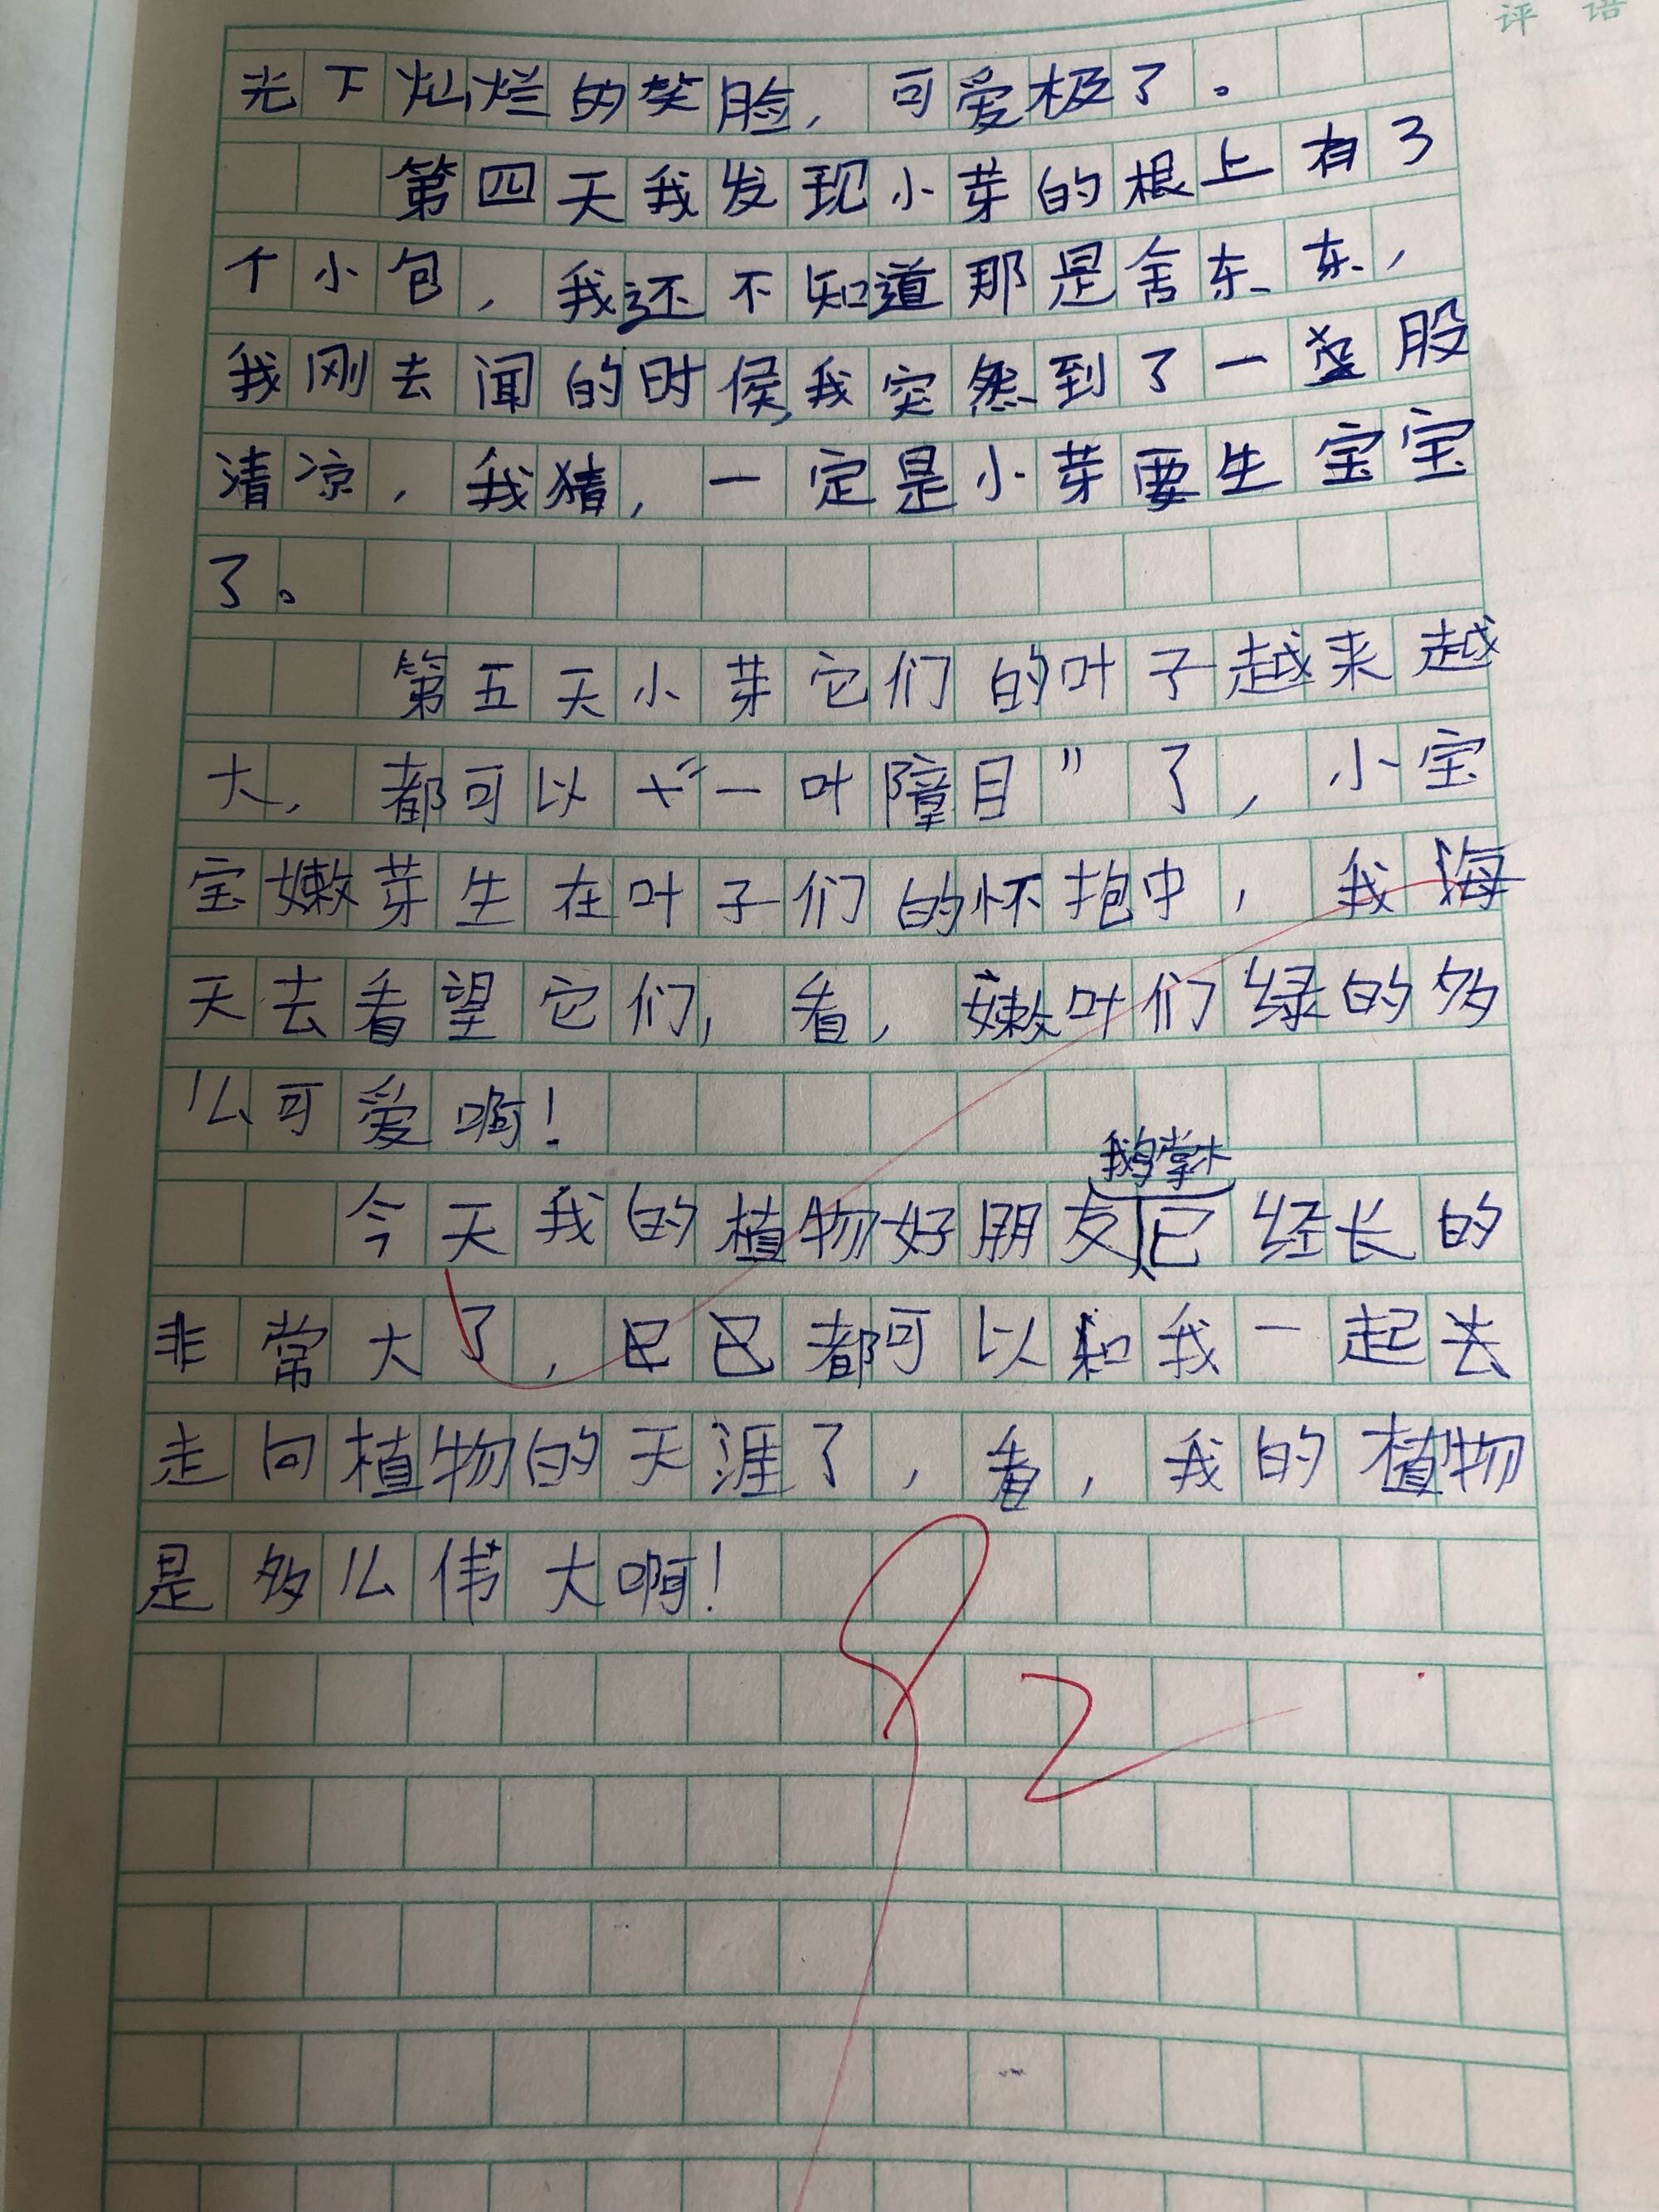 评 语
光下灿烂的笑脸,可爱极了。
第四天我发现小芽的根上有了
个小包,我还不知道那是舍东东,
我刚去闻的时侯,我突然到了一股
清凉,我猜,一定是小芽要生宝宝
了。
第五天小芽它们的叶子越来越
大,都可以“一叶障目”了,小宝
宝嫩芽生在叶子们的怀抱中,我海
天去看望它们,看,嫩叶们绿的多
么可爱啊!
鹅掌木
今天我的植物好朋友已经长的
非常大了,已都可以和我一起去
走向植物的天涯了,看,我的植物
是多么伟大啊!
92